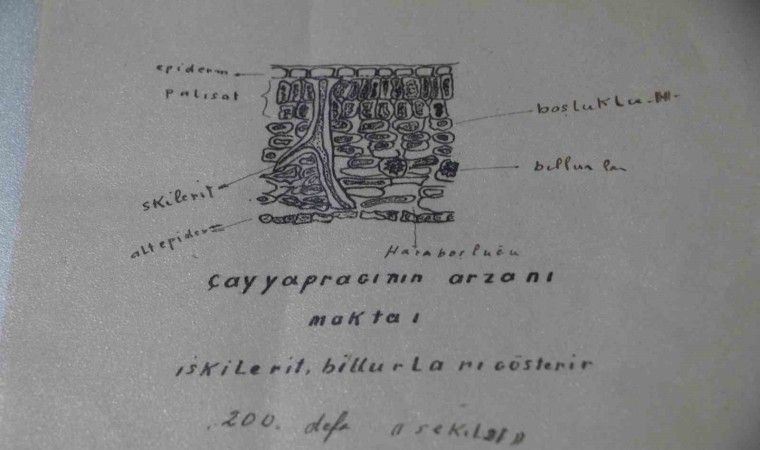 epiderm
palisat
boşluklu
billurlar
skilerit
alt epiderm
Havaboşluğu
çay yapragının arzanı
maktaı
iskilerit, billurları gösterir
200. defa